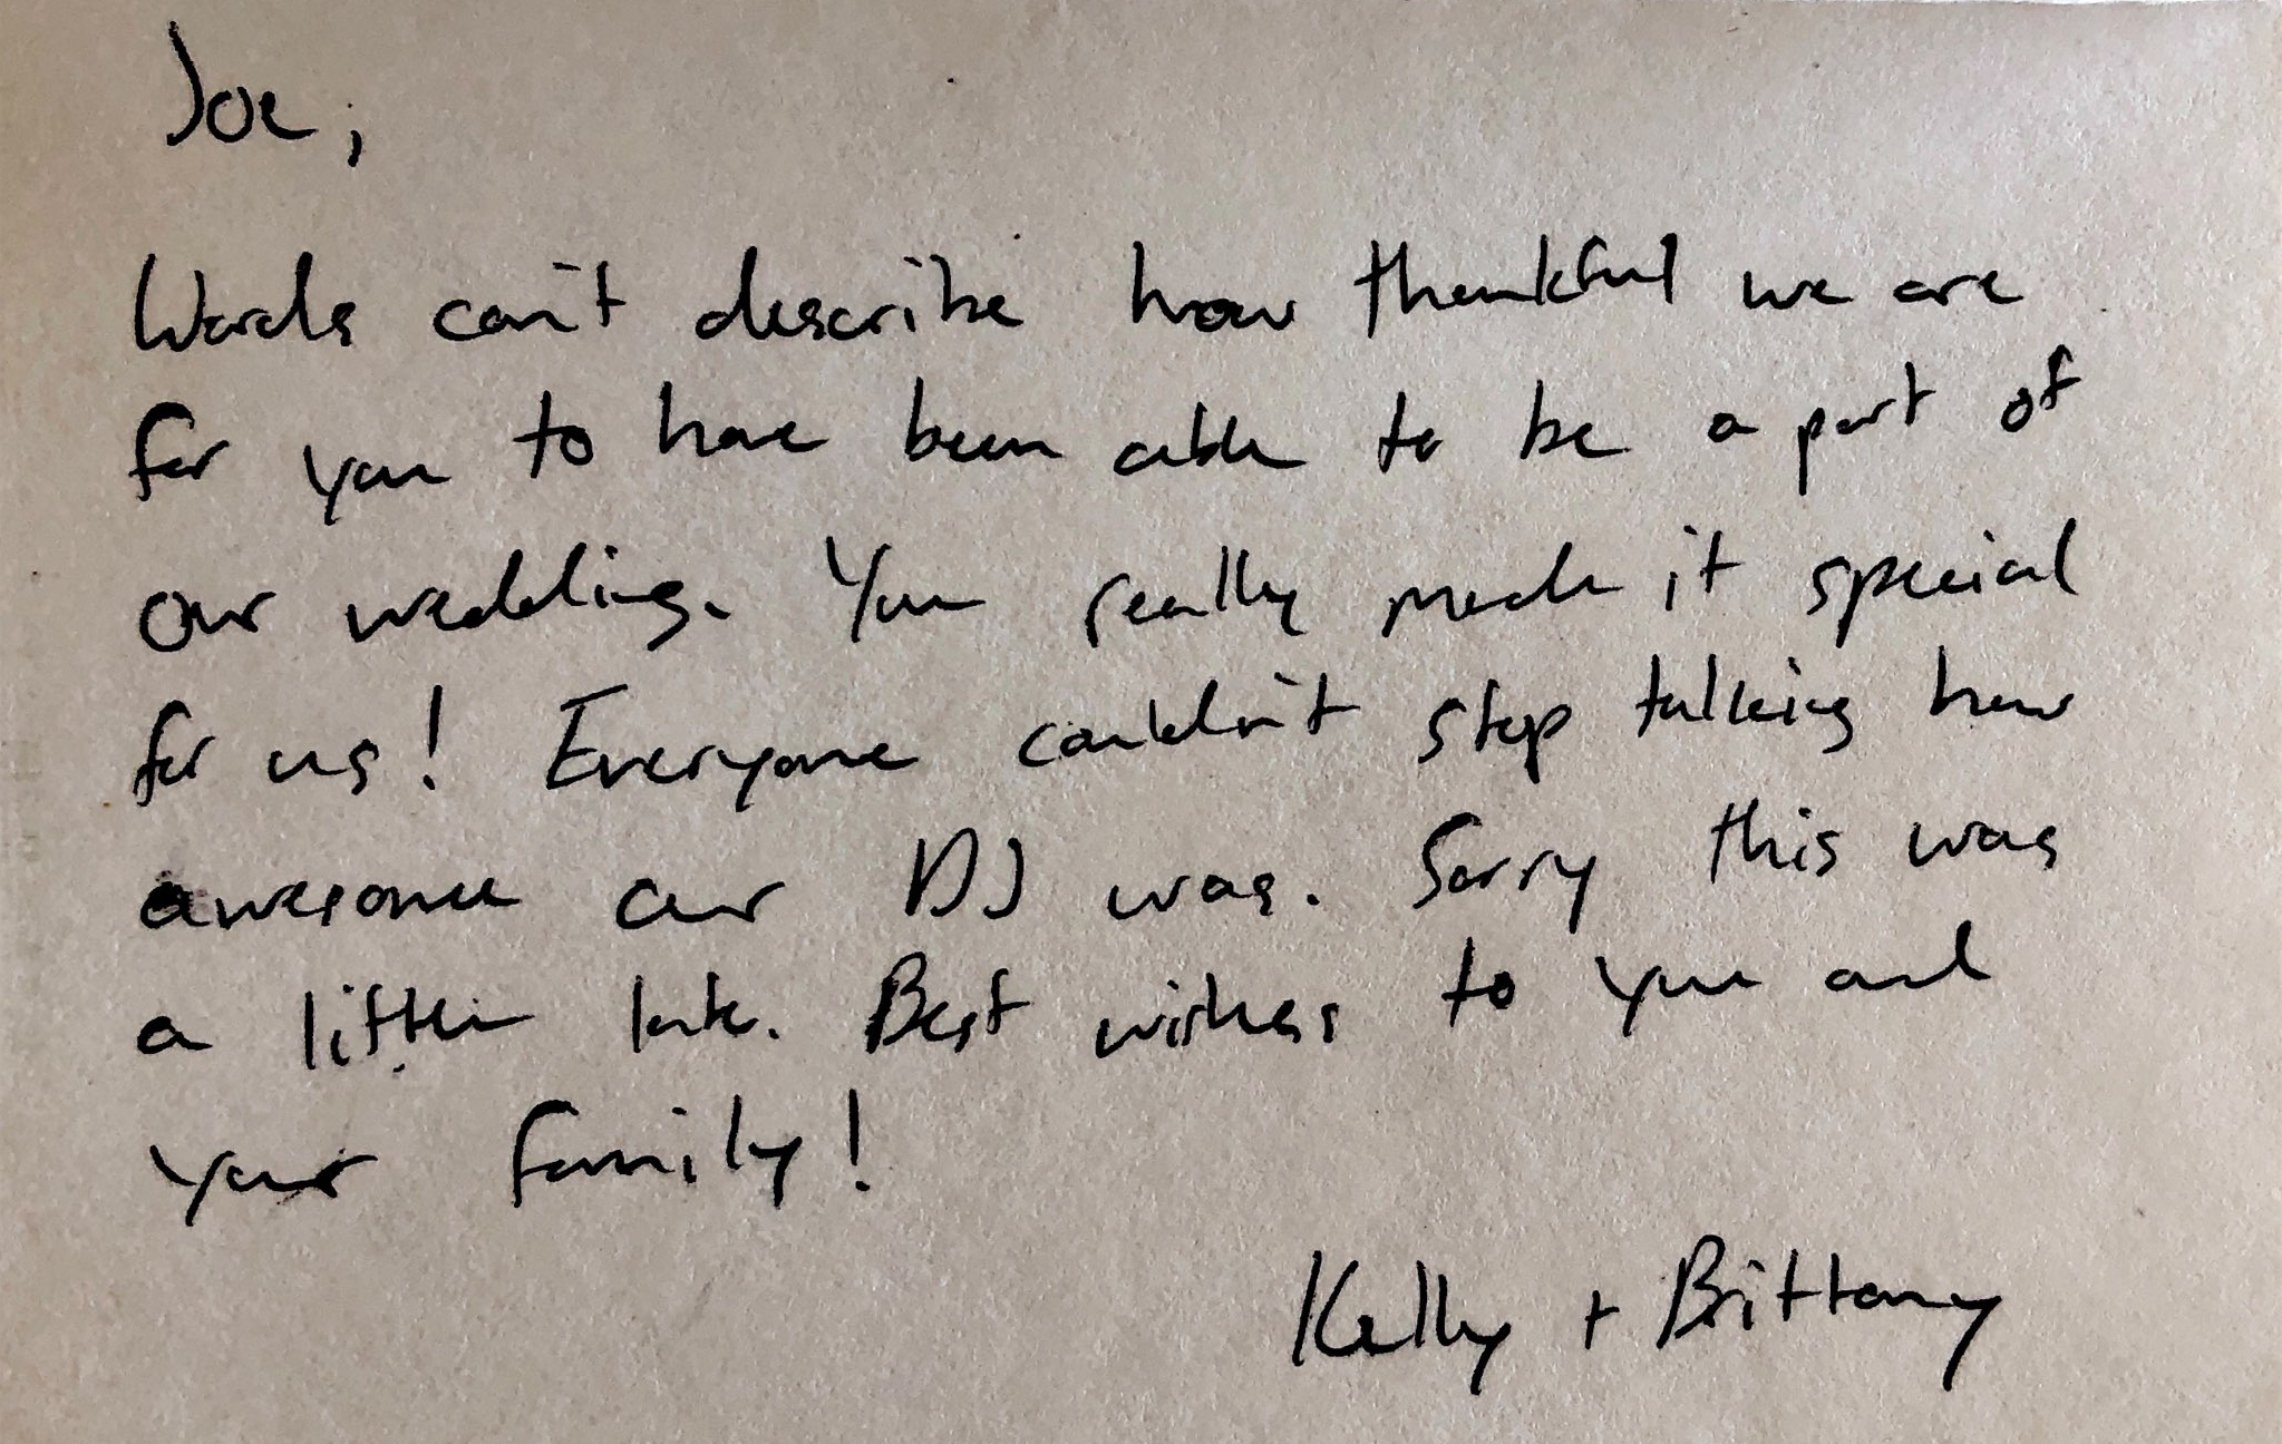 Joe,
Words can't describe how thankful we are
for you to have been able to be a part of
our wedding. You really made it special
for us! Everyone couldn't stop talking how
awesome our DJ was. Sorry this was
a little late. Best wishes to you and
your family!
Kelly + Brittany